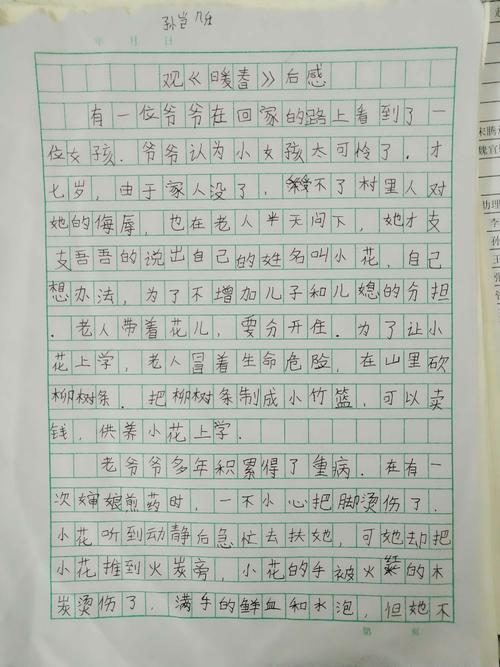 孙岂
年 月 日
观《暖春》后感
有一位爷爷在回家的路上看到了一
位女孩.爷爷认为小女孩太可怜了.才
七岁,由于家人没了,受不了村里人对
她的侮辱,也在老人半天问下,她才支
支吾吾的说出自己的姓名叫小花,自己
想办法,为了不增加儿子和儿媳的分担
.老人带着花儿,要分开住.为了让小
花上学,老人冒着生命危险,在山里砍
柳树条.把柳树条制成小竹篮,可以卖
钱,供养小花上学.
老爷爷多年积累得了重病.在有一
次婶娘煎药时,一不小心把脚烫伤了.
小花听到动静后急忙去扶她,可她却把
小花推到火炭旁,小花的手被火红的木
炭烫伤了,满手的鲜血和水泡,但她不
第 页